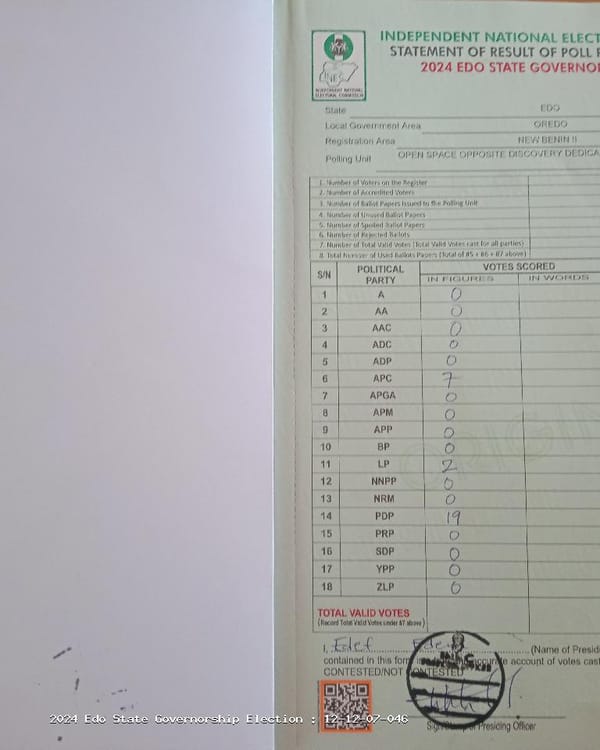 INDEPENDENT NATIONAL ELECT
STATEMENT OF RESULT OF POLL F
2024 EDO STATE GOVERNO
INEC
INDEPENDENT NATIONAL
ELECTORAL COMMISSION
State EDO
Local Government Area OREDO
Registration Area NEW BENIN II
Polling Unit OPEN SPACE OPPOSITE DISCOVERY DEDICA
1. Number of Voters on the Register
2. Number of Accredited Voters
3. Number of Ballot Papers Issued to the Polling Unit
4. Number of Unused Ballot Papers
5. Number of Spoiled Ballot Papers
6. Number of Rejected Ballots
7. Number of Total Valid Votes (Total Valid Votes cast for all parties)
8. Total Number of Used Ballots Papers (Total of #5 + #6 + #7 above)
S/N POLITICAL PARTY VOTES SCORED
IN FIGURES IN WORDS
1 A 0
2 AA 0
3 AAC 0
4 ADC 0
5 ADP 0
6 APC 7
7 APGA 0
8 APM 0
9 APP 0
10 BP 0
11 LP 2
12 NNPP 0
13 NRM 0
14 PDP 19
15 PRP 0
16 SDP 0
17 YPP 0
18 ZLP 0
TOTAL VALID VOTES
(Record Total Valid Votes under #7 above)
I, (Name of Presid
contained in this form accurate account of votes cast
CONTESTED/NOT CONTESTED
Presiding Officer
2024 Edo State Governorship Election : 12-12-07-046